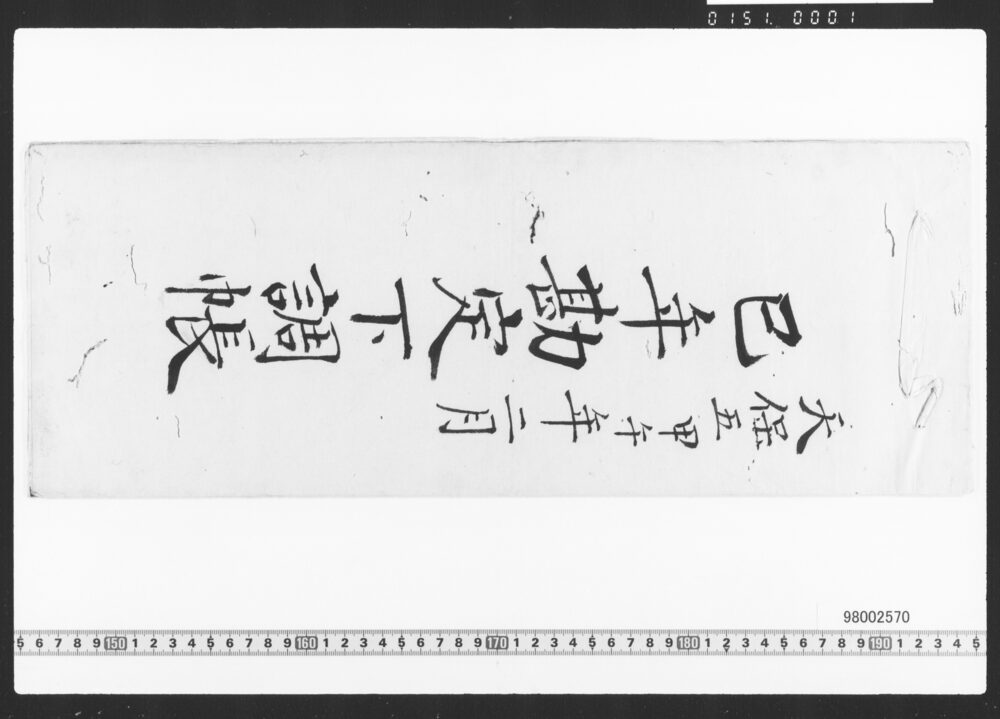 0151. 0001
天保五甲午年二月
巳年勘定下調帳
98002570
5 6 7 8 9 150 1 2 3 4 5 6 7 8 9 160 1 2 3 4 5 6 7 8 9 170 1 2 3 4 5 6 7 8 9 180 1 2 3 4 5 6 7 8 9 190 1 2 3 4 5